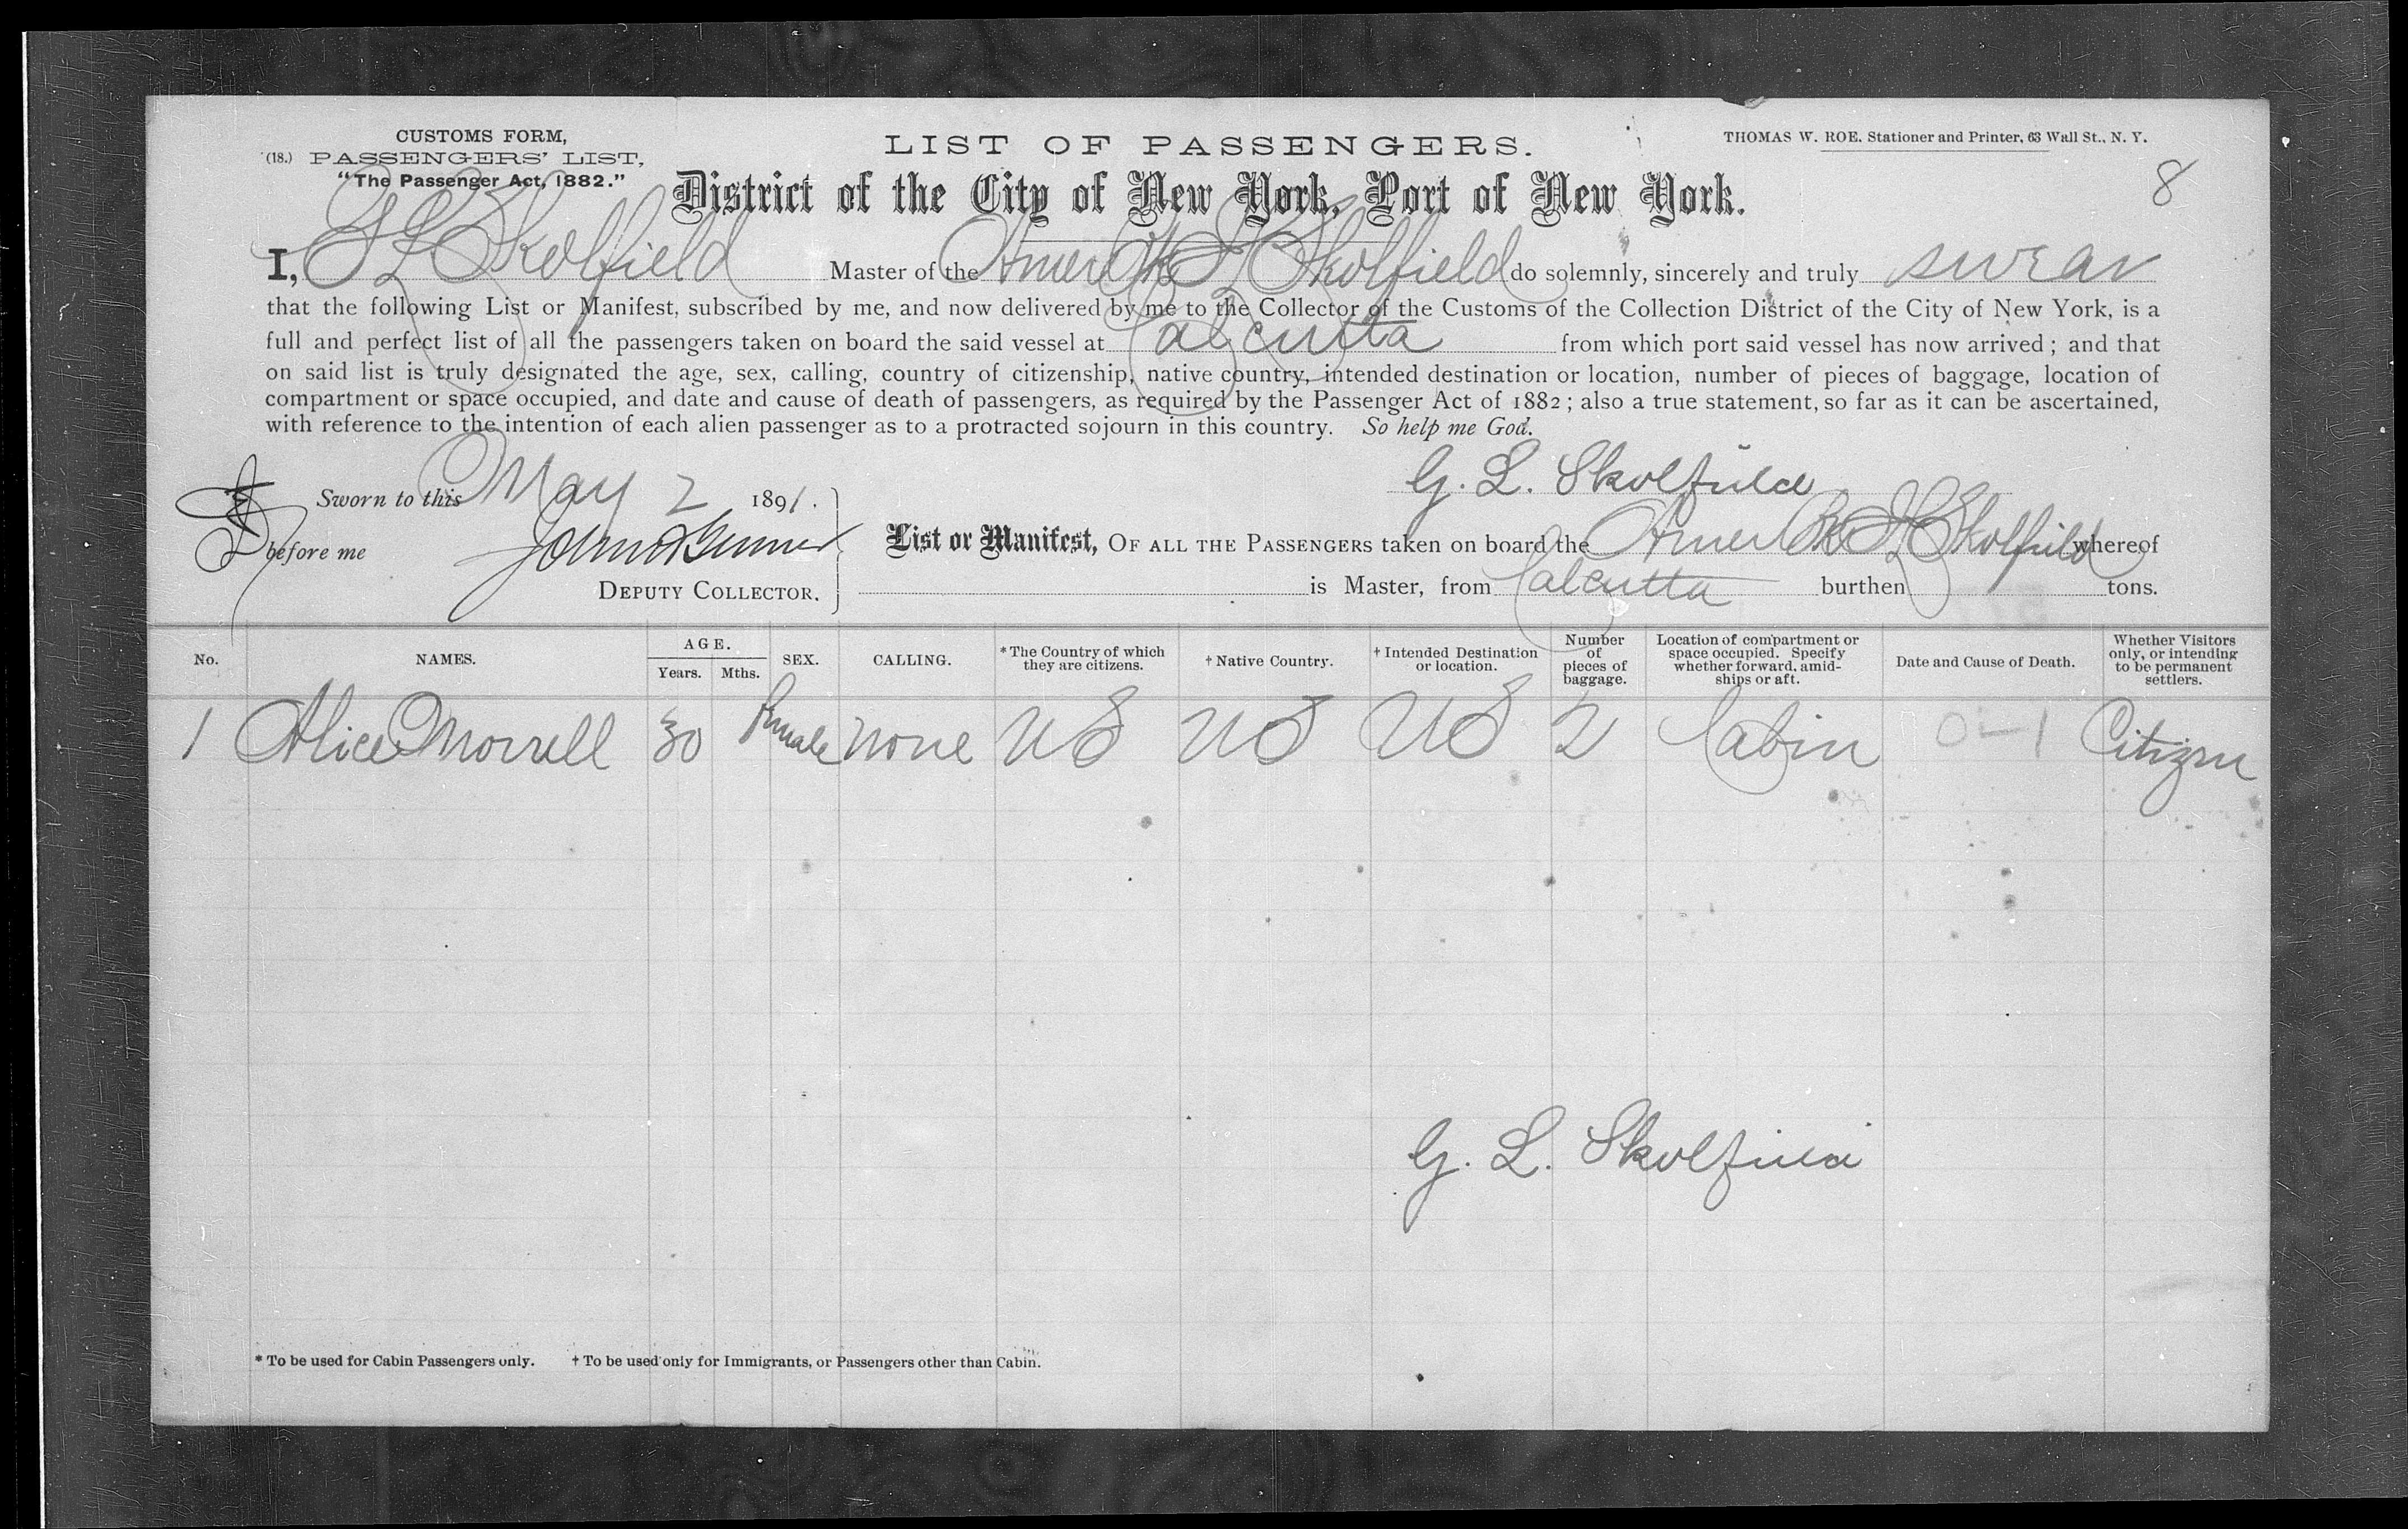 CUSTOMS FORM,
(18.) PASSENGERS' LIST,
"The Passenger Act, 1882."
LIST OF PASSENGERS.
THOMAS W. ROE. Stationer and Printer, 63 Wall St., N. Y.
8
District of the City of New York, Port of New York.
I, G L Skolfield Master of the Amer Bk G L Skolfield do solemnly, sincerely and truly swear
that the following List or Manifest, subscribed by me, and now delivered by me to the Collector of the Customs of the Collection District of the City of New York, is a
full and perfect list of all the passengers taken on board the said vessel at Calcutta from which port said vessel has now arrived; and that
on said list is truly designated the age, sex, calling, country of citizenship, native country, intended destination or location, number of pieces of baggage, location of
compartment or space occupied, and date and cause of death of passengers, as required by the Passenger Act of 1882; also a true statement, so far as it can be ascertained,
with reference to the intention of each alien passenger as to a protracted sojourn in this country. So help me God.
G. L. Skolfield
Sworn to this May 2 1891.
before me
DEPUTY COLLECTOR.
List or Manifest, OF ALL THE PASSENGERS taken on board the Amer Bk G L Skolfield whereof
is Master, from Calcutta burthen tons.
No. NAMES. AGE. Years. Mths. SEX. CALLING. * The Country of which they are citizens. † Native Country. † Intended Destination or location. Number of pieces of baggage. Location of compartment or space occupied. Specify whether forward, amidships or aft. Date and Cause of Death. Whether Visitors only, or intending to be permanent settlers.
1 Alice Morrell 30 female none US US US 2 Cabin Citizen
G. L. Skolfield
* To be used for Cabin Passengers only. † To be used only for Immigrants, or Passengers other than Cabin.